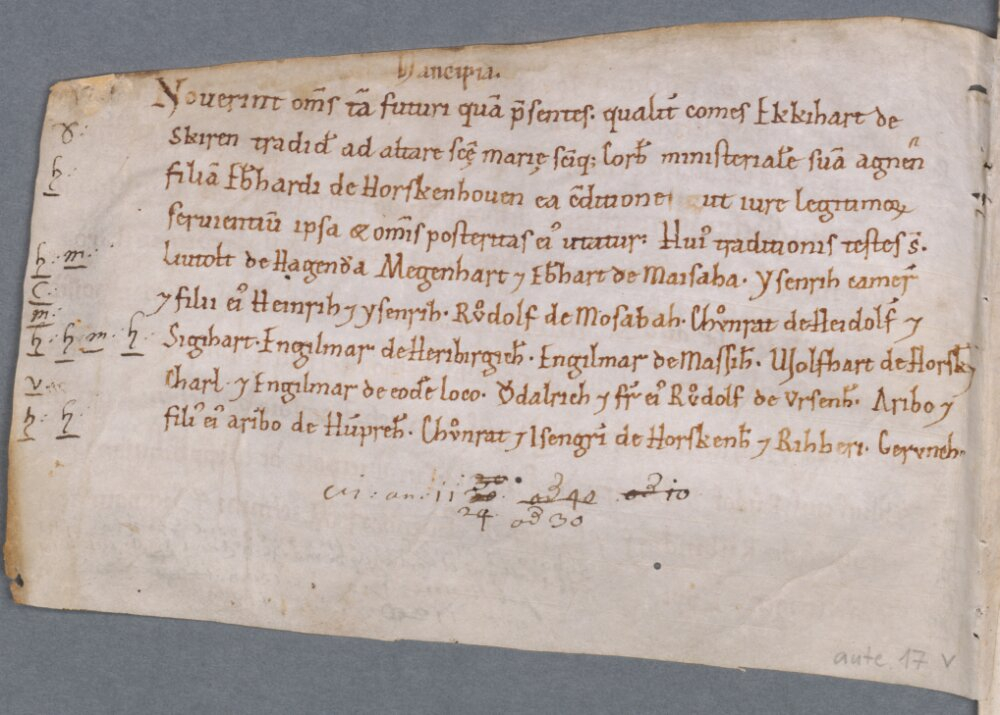 Mancipia.
Nouerint om̅s ta̅ futuri qua̅ p̅sentes. qualit̅ comes Ekkihart de
Skiren tradid̅ ad altare sc̅ę marię sc̅iq; Corb̅ ministeriale̅ sua̅ agnen̅
filia̅ Eb̅hardi de Horskenhouen ea c̅ditione ut iure legitimoꝝ
seruientiu̅ ipsa & om̅is posteritas ei᷒ utatur: Hui᷒ traditionis testes s̅.
liutolt de Hagenǒa Megenhart ⁊ Eb̅hart de Maisaha. ysenrih camer̅
⁊ filii ei᷒ Heinrih ⁊ ysenrih. Rǒdolf de Mosabah. Chǒnrat de Heidolf̅ ⁊
Sigihart. Engilmar de Heribirgich̅. Engilmar de Massih̅. Wolfhart de Horsk̅ ⁊
Charl. ⁊ Engilmar de eode̅ loco. Ǒdalrich ⁊ fr̅ ei᷒ Rǒdolf de ursenh̅. Aribo ⁊
fili᷒ ei᷒ aribo de Hu̅preh̅. Chǒnrat ⁊ Isengri̅ de Horskenh̅ ⁊ Rihheri. Geruuch.
an. 11 30 od 40 od 10
24 od 30
h.
h. m.
C.
m.
h. h m. h.
v.
h. h.
ante 17 v